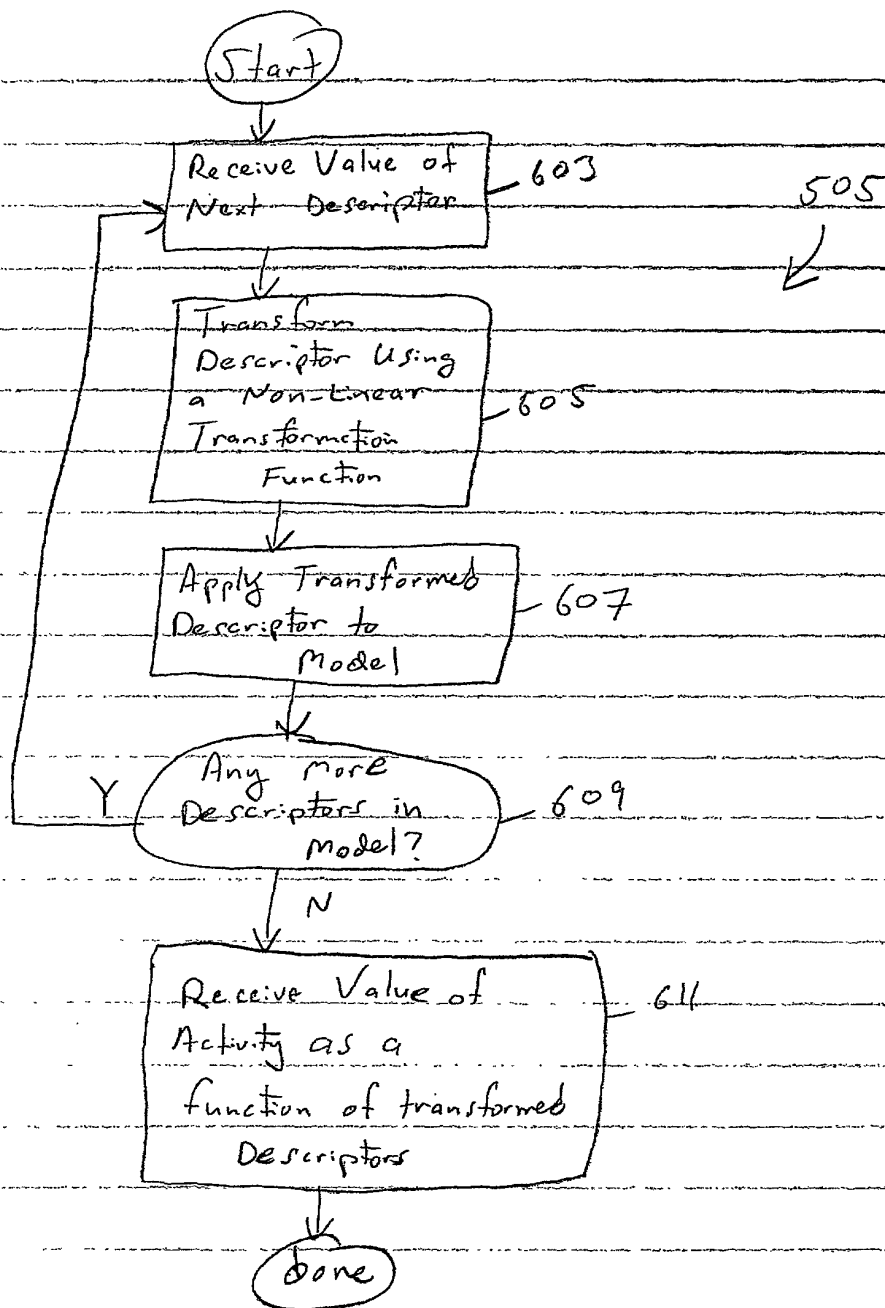 Start
Receive Value of
Next Descriptor
603
505
Transform
Descriptor Using
a Non-Linear
Transformation
Function
605
Apply Transformed
Descriptor to
Model
607
Any more
Descriptors in
Model?
609
Y
N
Receive Value of
Activity as a
function of transformed
Descriptors
611
done